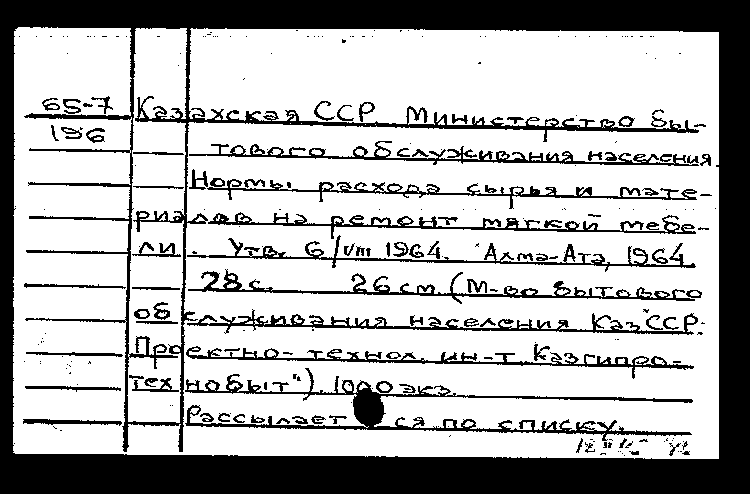 65-7 Казахская ССР Министерство бы-
196
тового обслуживания населения.
Нормы расхода сырья и мате-
риалов на ремонт мягкой мебе-
ли. Утв. 6/VIII 1964. Алма-Ата, 1964.
28 с. 26 см. (М-во бытового
обслуживания населения КазССР.
Проектно-технол. ин-т "Казгипро-
технобыт"). 1000 экз.
Рассылается по списку.